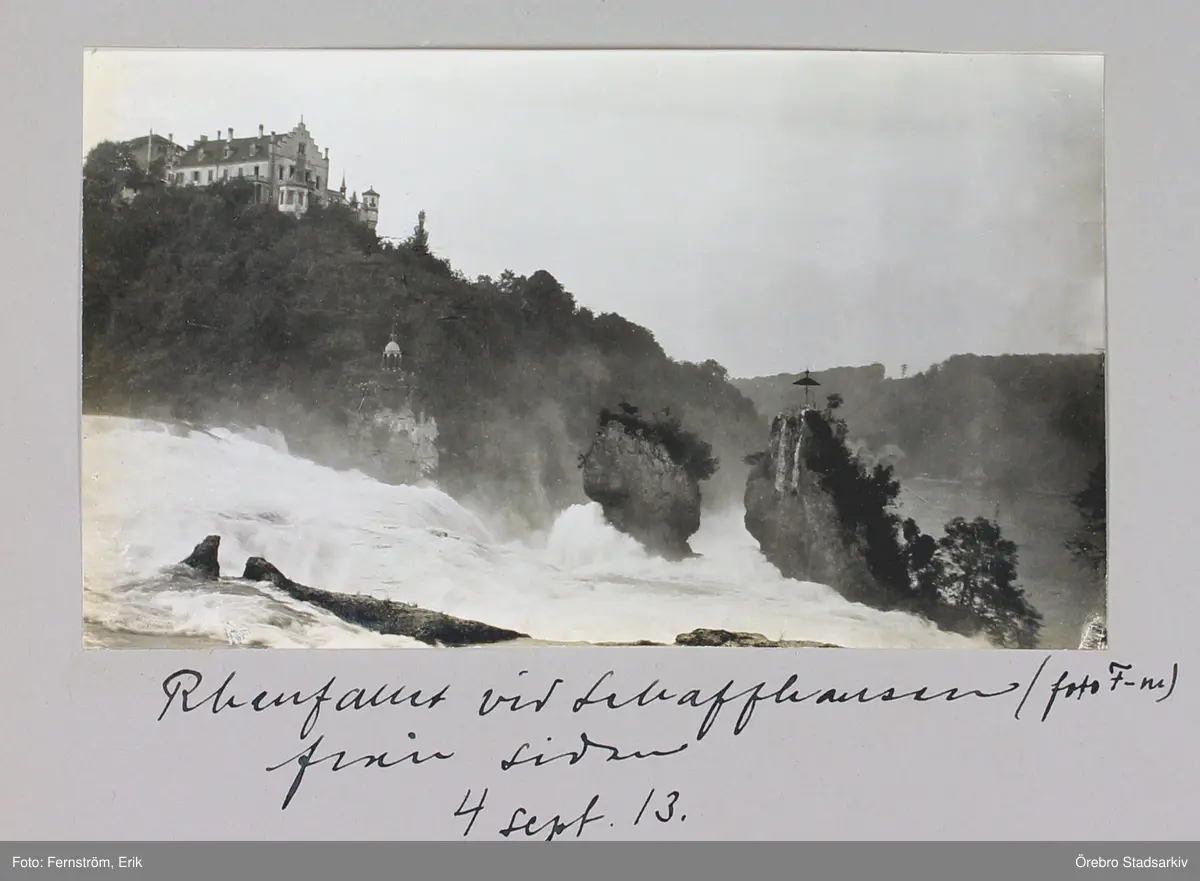 Rhenfallet vid Schaffhausen (foto F-m)
från sidan
4 sept. 13.
Foto: Fernström, Erik
Örebro Stadsarkiv